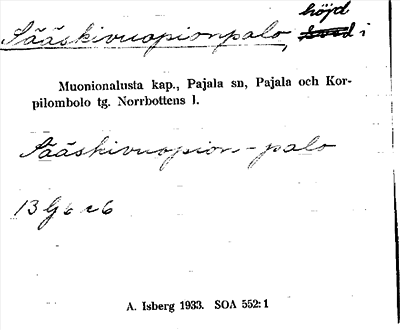 Sääskivuopionpalo, höjd i
Muonionalusta kap., Pajala sn, Pajala och Kor-
pilombolo tg. Norrbottens l.
Sääskivuopion-palo
13 G c 6
A. Isberg 1933. SOA 552:1